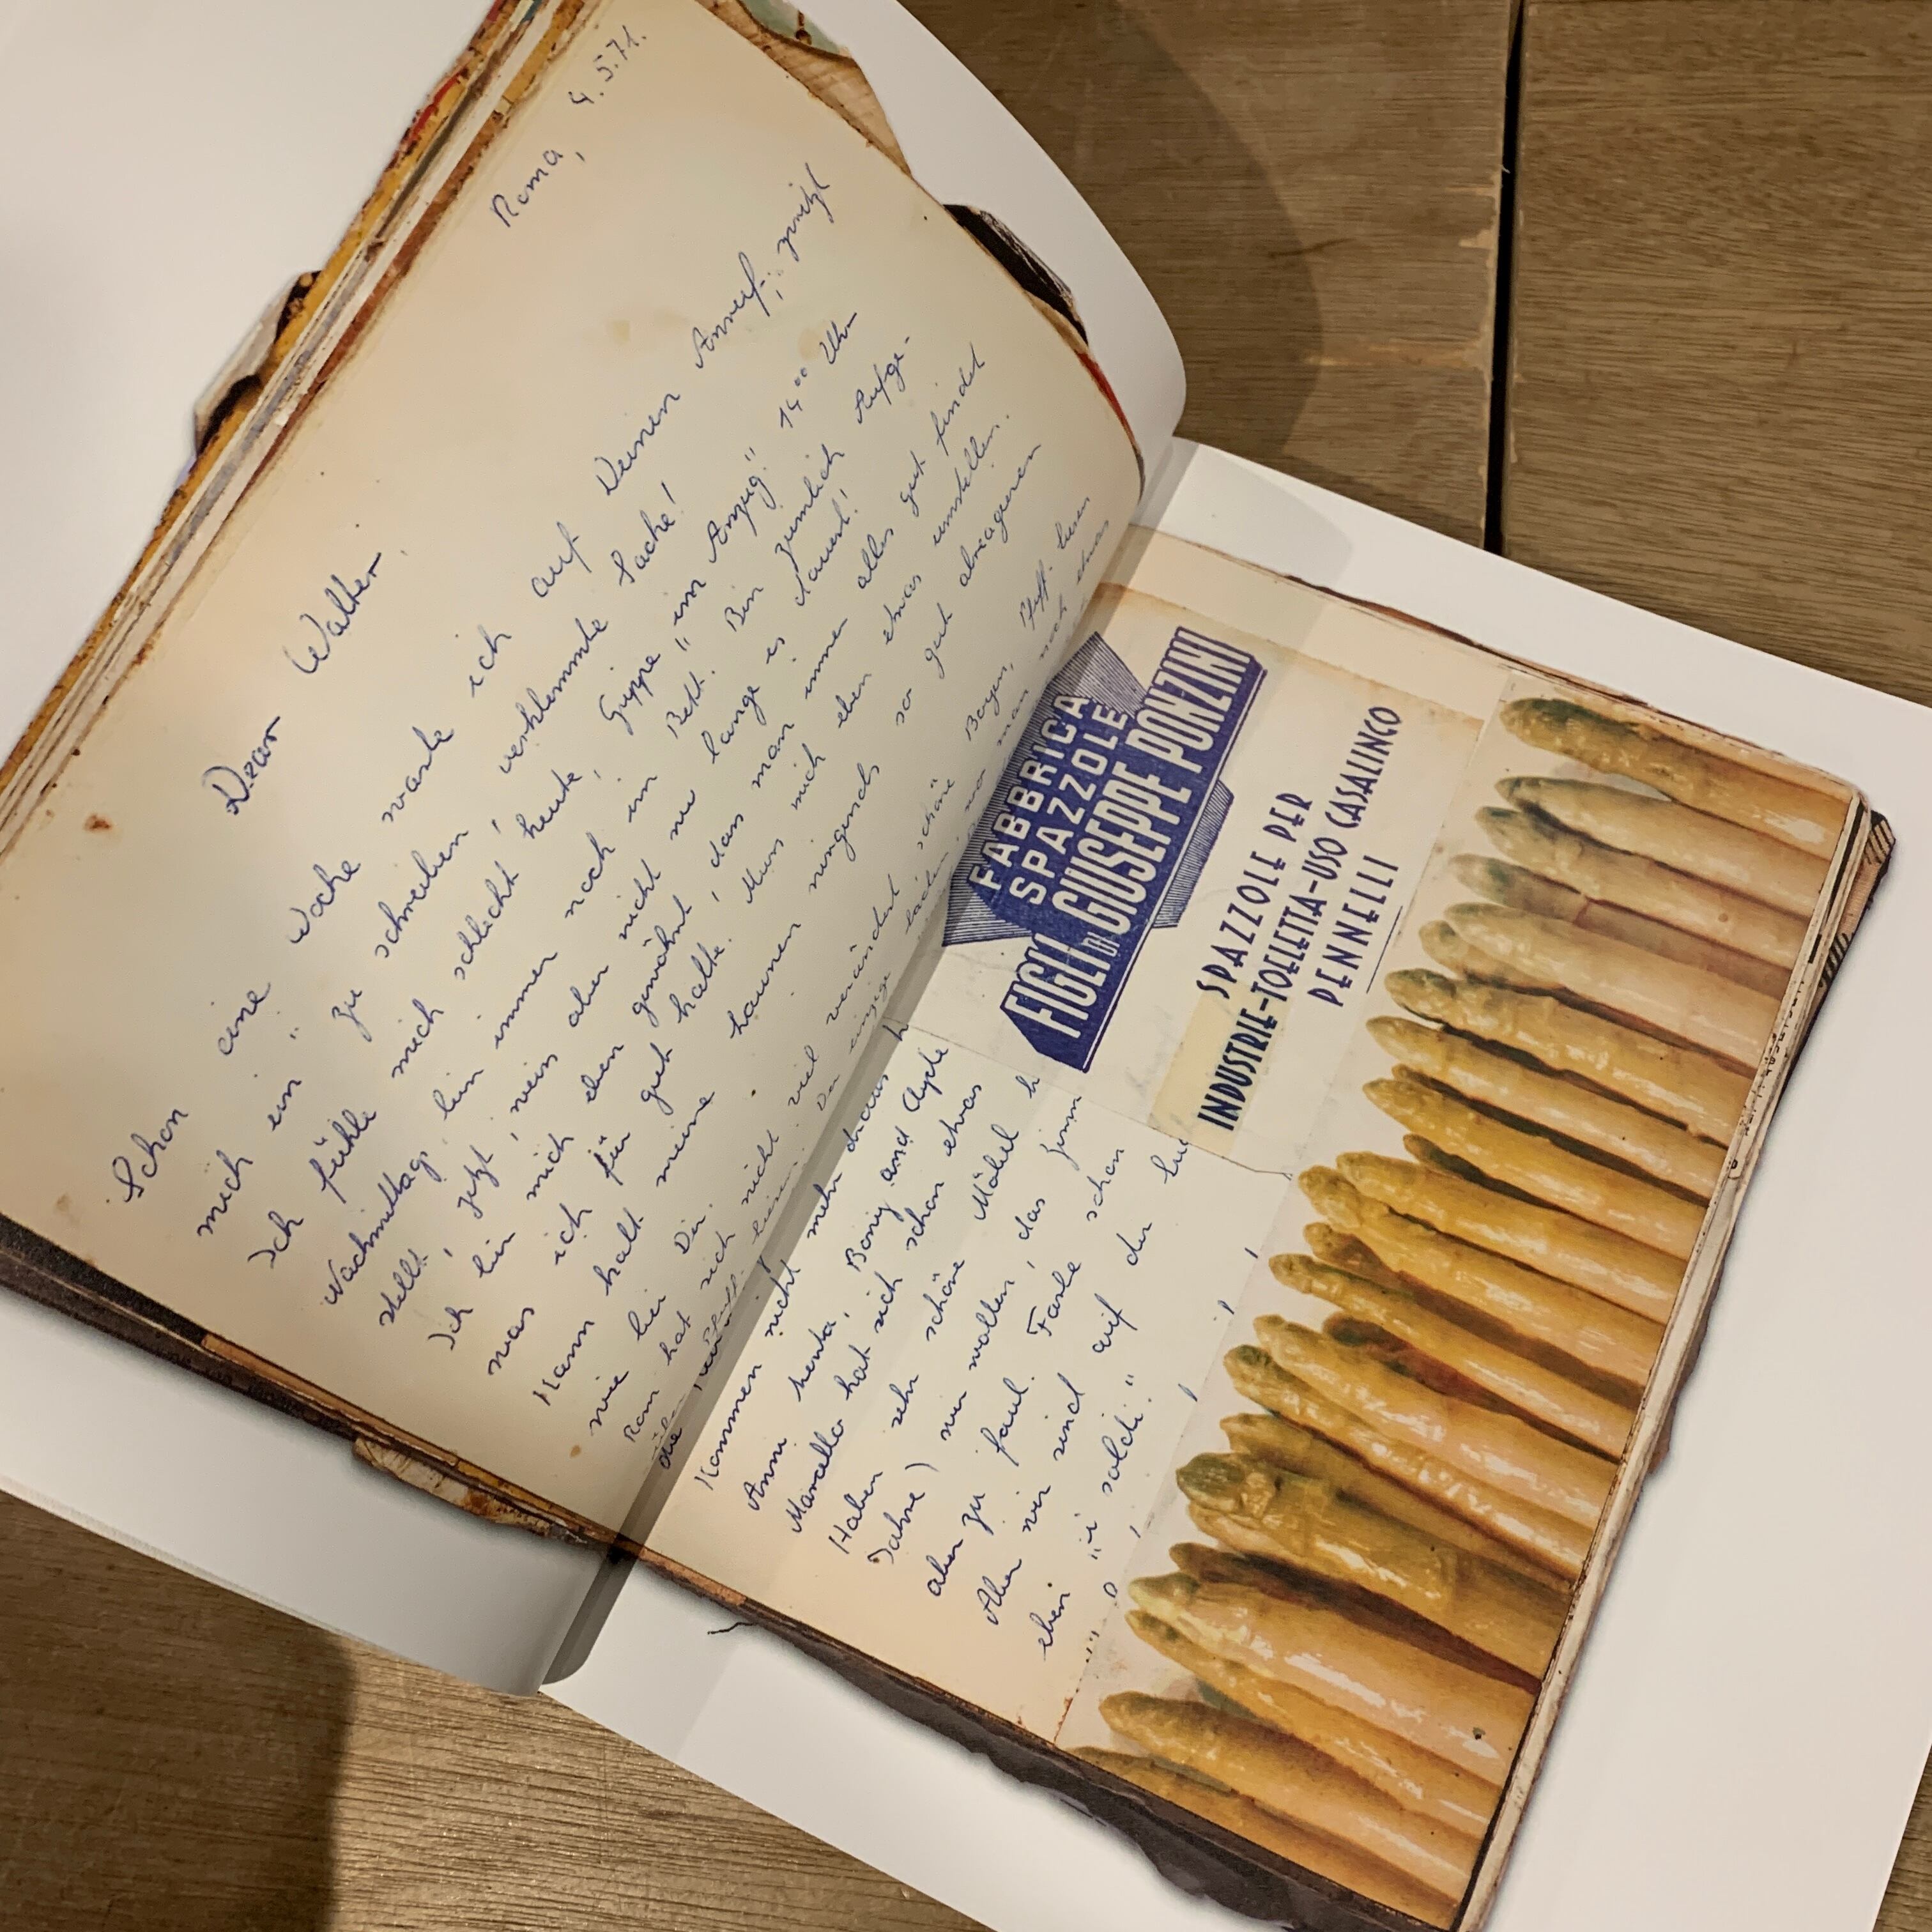 Roma, 4.5.71.
Dear Walter,
Schon eine Woche warte ich auf Deinen Anruf, jetzt
mich ein" zu schreiben, verklemmte Sache!
Ich fühle mich schlecht heute, Grippe „im Anzug" 14°° Uhr
Nachmittag, bin immer noch im Bett. Bin ziemlich Aufge-
stellt, jetzt, weis aber nicht wie lange es dauert!
Ich bin mich eben gewöhnt, dass man immer alles gut findet
was ich für gut halte. Muss mich eben etwas umstellen.
Kann halt meine Launen nirgends so gut abreagieren
wie bei Dir.
Rom hat sich nicht viel verändert, schöne Bogen, Stoff-
Die einzige man noch etwas
Kommen nicht mehr draus
Anni Menta, Bony and Clyde
Marcello hat sich schon etwas
Haben sehr schöne Möbel
Jahre) wir wollen, das Zimm
aber zu faul. Farbe schon
Aber wir sind auf der
eben „i soldi"
FABBRICA
SPAZZOLE
FIGLI DI GIUSEPPE PONZINI
SPAZZOLE PER
INDUSTRIE-TOELETTA-USO CASALINGO
PENNELLI